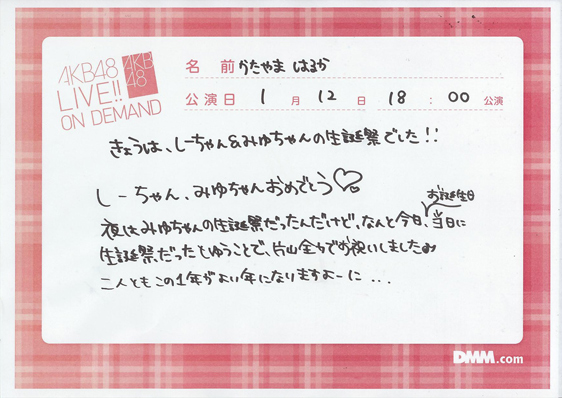 AKB48
LIVE!!
ON DEMAND
AKB
48
名 前 かたやま はるか
公演日 1 月 12 日 18 : 00 公演
きょうは、しーちゃん&みゆちゃんの生誕祭でした!!
しーちゃん、みゆちゃんおめでとう♡
お誕生日
夜はみゆちゃんの生誕祭だったんだけど、なんと今日、当日に
生誕祭だったとゆうことで、片山全力でお祝いしました
二人ともこの1年がよい年になりますよーに...
DMM.com